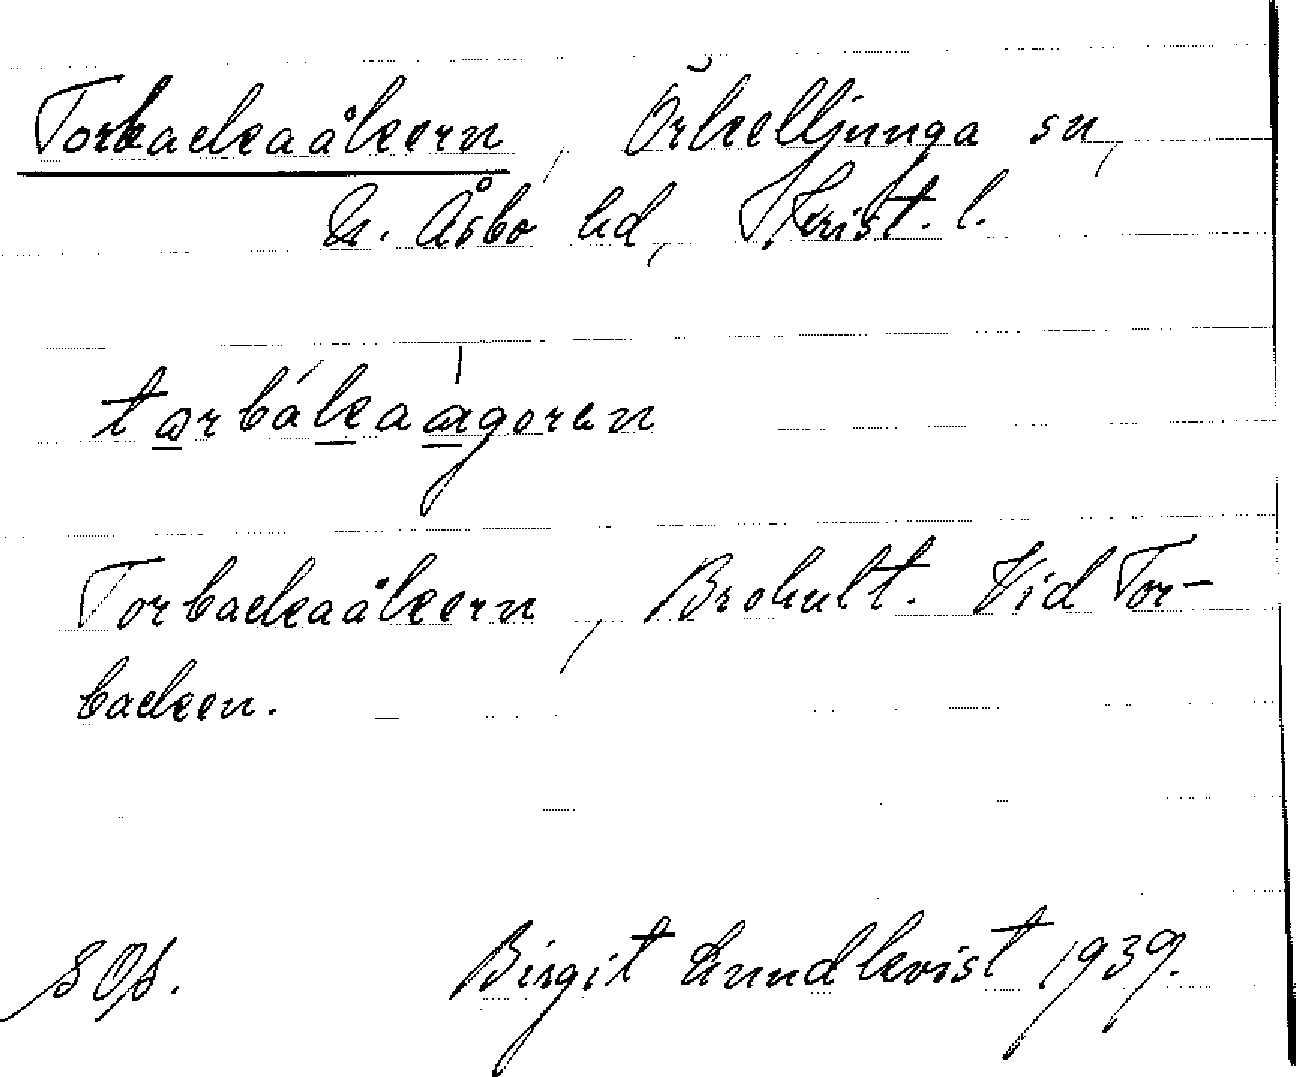 Torbackaåkern, Örkelljunga sn,
N. Åsbo hd, Krist. l.
Torbackaåkern, Brohult. Vid Tor-
backen.
Birgit Lundkvist 1939.